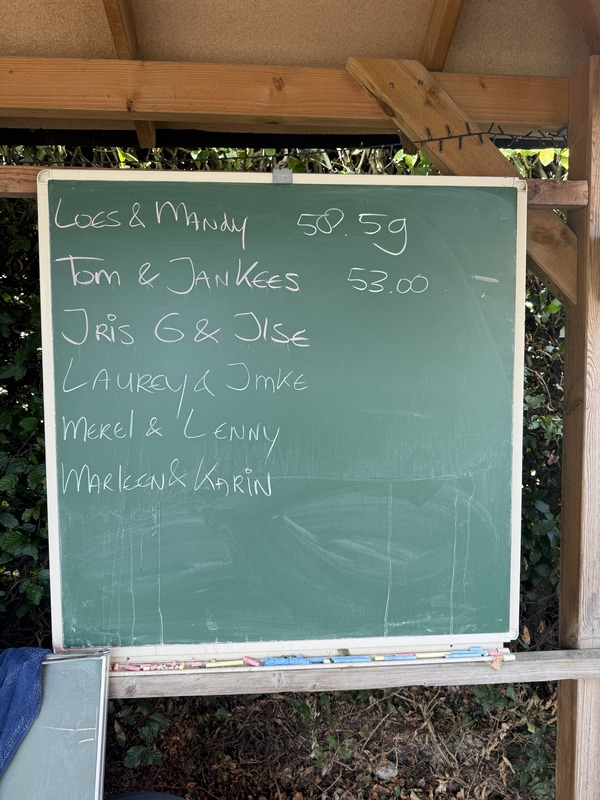 Loes & Mandy 58.59
Tom & JanKees 53.00
Iris G & Ilse
Laurey & Imke
Merel & Lenny
Marleen & Karin